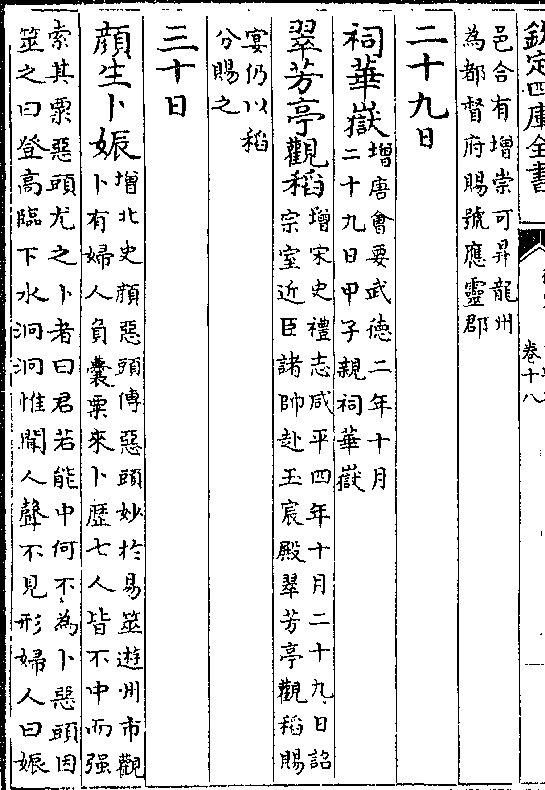 欽定四庫全書
卷十八
邑合有增崇可昇龍州
為都督府賜號應靈郡
二十九日
祠華嶽增唐會要武德二年十月
二十九日甲子親祠華嶽
翠芳亭觀稻增宋史禮志咸平四年十月二十九日詔
宗室近臣諸帥赴玉宸殿翠芳亭觀稻賜
宴仍以稻
分賜之
三十日
顔生卜娠增北史顔惡頭傳惡頭妙於易筮遊州市觀
卜有婦人負囊粟來卜歴七人皆不中而强
索其粟惡頭尤之卜者曰君若能中何不為卜惡頭因
筮之曰登高臨下水泂泂惟聞人聲不見形婦人曰娠